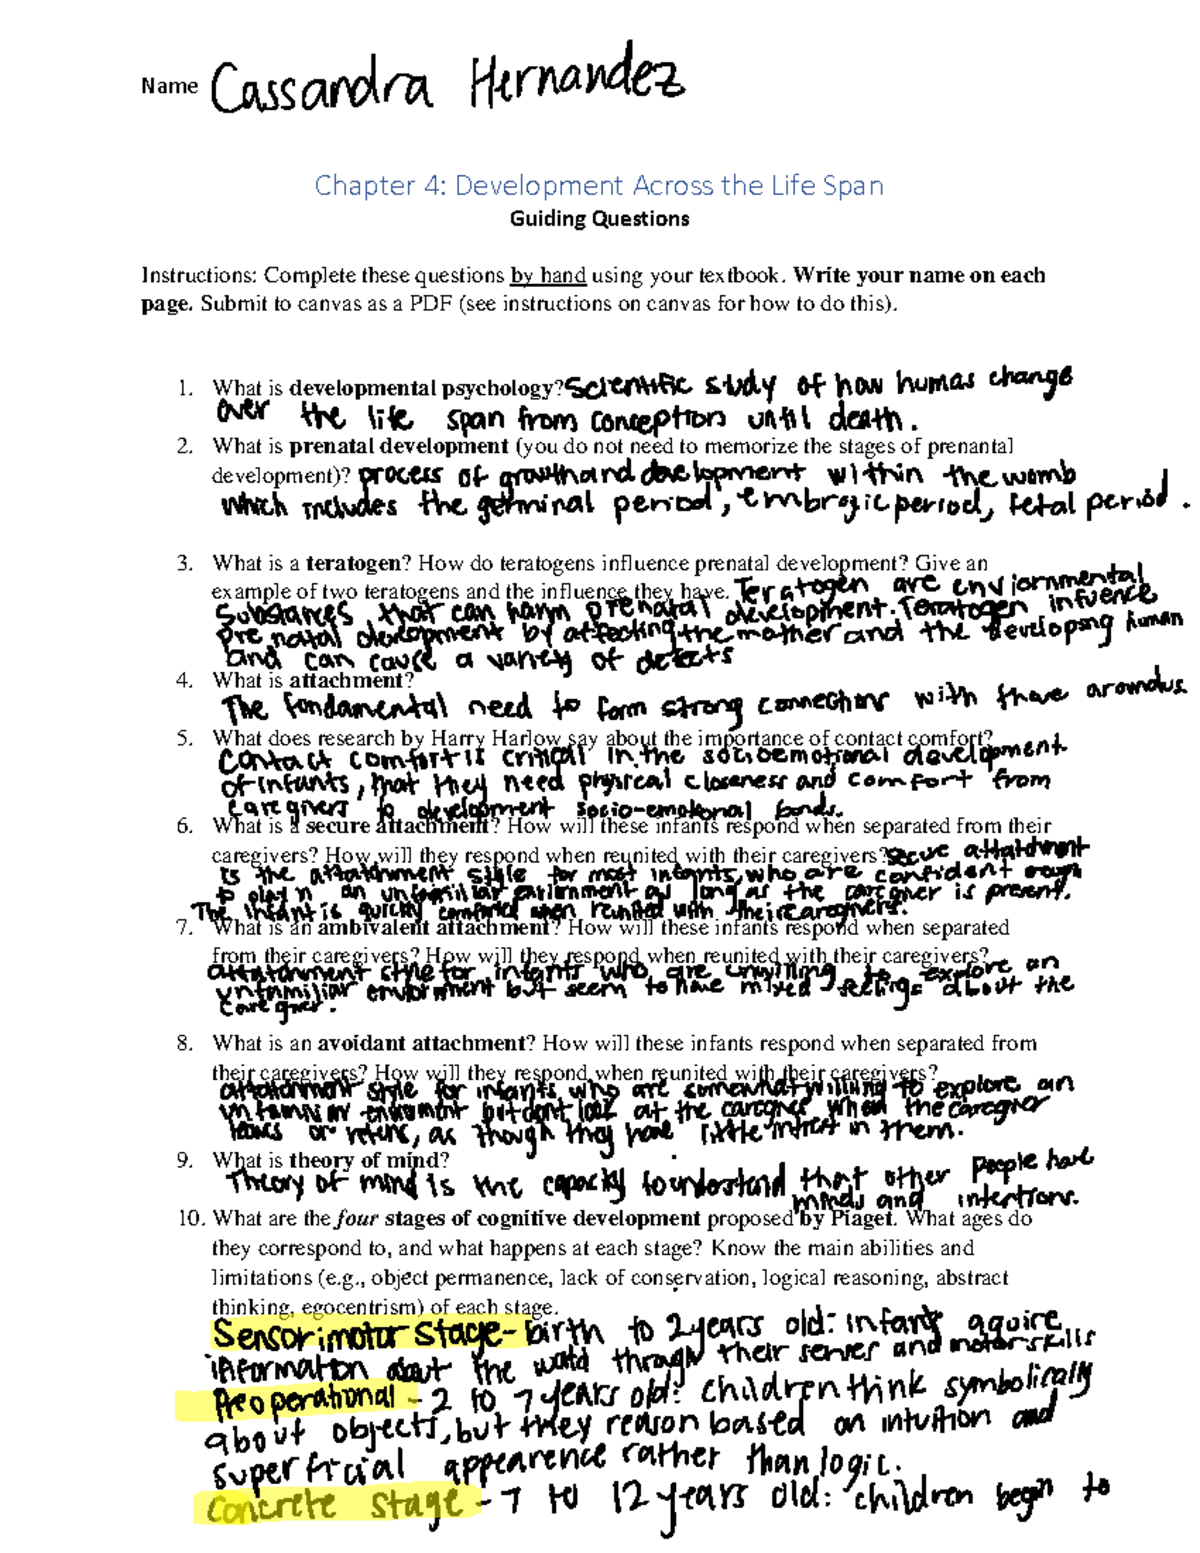 Name Cassandra Hernandez
Chapter 4: Development Across the Life Span
Guiding Questions
Instructions: Complete these questions by hand using your textbook. Write your name on each
page. Submit to canvas as a PDF (see instructions on canvas for how to do this).
1. What is developmental psychology? Scientific study of how humas change
over the life span from conception until death.
2. What is prenatal development (you do not need to memorize the stages of prenantal
development)? process of growth and development within the womb
which includes the germinal period, embrojic period, fetal period.
3. What is a teratogen? How do teratogens influence prenatal development? Give an
example of two teratogens and the influence they have. Teratogen are enviornmental
Substances that can harm prenatal development. Teratogen infuence
prenatal development by affecting the mother and the developing human
and can cause a variety of defects
4. What is attachment?
The fondamental need to form strong connections with those aroundus.
5. What does research by Harry Harlow say about the importance of contact comfort?
Contact comfort is critical in the socioemotional development
of infants, that they need physical closeness and comfort from
caregivers to development socio-emotional bonds.
6. What is a secure attachment? How will these infants respond when separated from their
caregivers? How will they respond when reunited with their caregivers? secure attatchment
is the attatchment style for most infants, who are confident enough
to play in an unfamiliar enviornment as long as the caregiver is present.
The infant is quickly comforted when reunited with their caregivers.
7. What is an ambivalent attachment? How will these infants respond when separated
from their caregivers? How will they respond when reunited with their caregivers?
attatchment style for infants who are unwilling to explore an
unfamiliar enviornment but seem to have mixed feelings about the
caregiver.
8. What is an avoidant attachment? How will these infants respond when separated from
their caregivers? How will they respond when reunited with their caregivers?
attatchment style for infants who are somewhat willing to explore an
unfamiliar enviroment but dont look at the caregiver when the caregiver
leaves or returns, as though they have little intrest in them.
9. What is theory of mind?
Theory of mind is the capacity to understand that other people have
minds and intentions.
10. What are the four stages of cognitive development proposed by Piaget. What ages do
they correspond to, and what happens at each stage? Know the main abilities and
limitations (e.g., object permanence, lack of conservation, logical reasoning, abstract
thinking, egocentrism) of each stage.
Sensorimotor Stage- birth to 2 years old: infants aquire
information about the world through their senses and motor skills
Preoperational - 2 to 7 years old: children think symbolically
about objects, but they reason based on intuition and
superficial appearence rather than logic.
Concrete Stage - 7 to 12 years old: children begin to